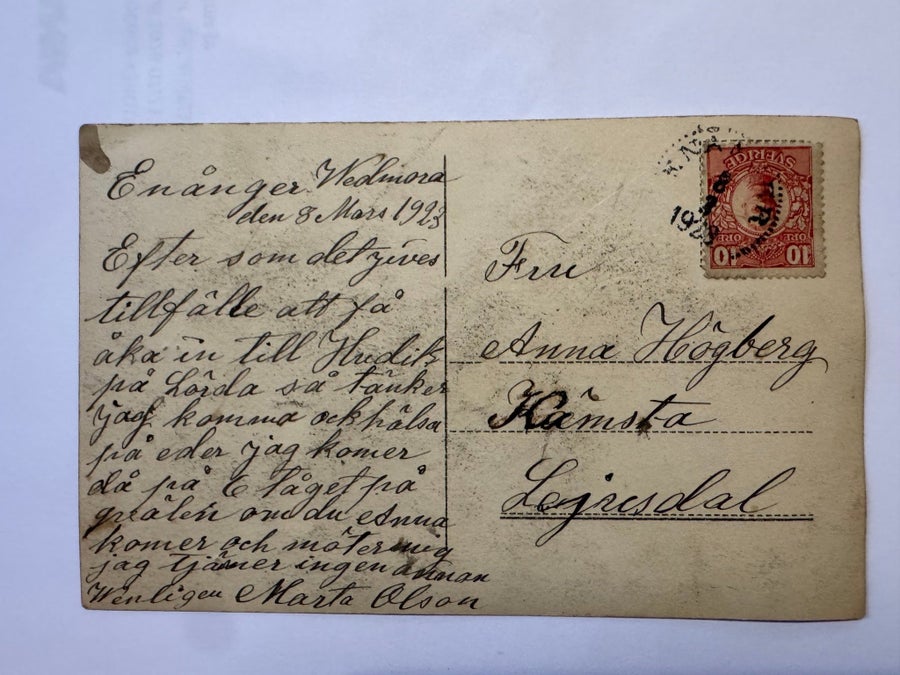 Enånger Wedmora
den 8 Mars 1923
Efter som det gives
tillfälle att få
åka in till Hudik
på Lörda så tänker
jag komma ock hälsa
på eder jag komer
då på 6 tåget på
qvälen om du Anna
komer och möter mig
jag tjäner ingen annan
Wenligen Marta Olson
Fru
Anna Högberg
Hämsta
SVERIGE
10 ÖRE ÖRE 10
1923